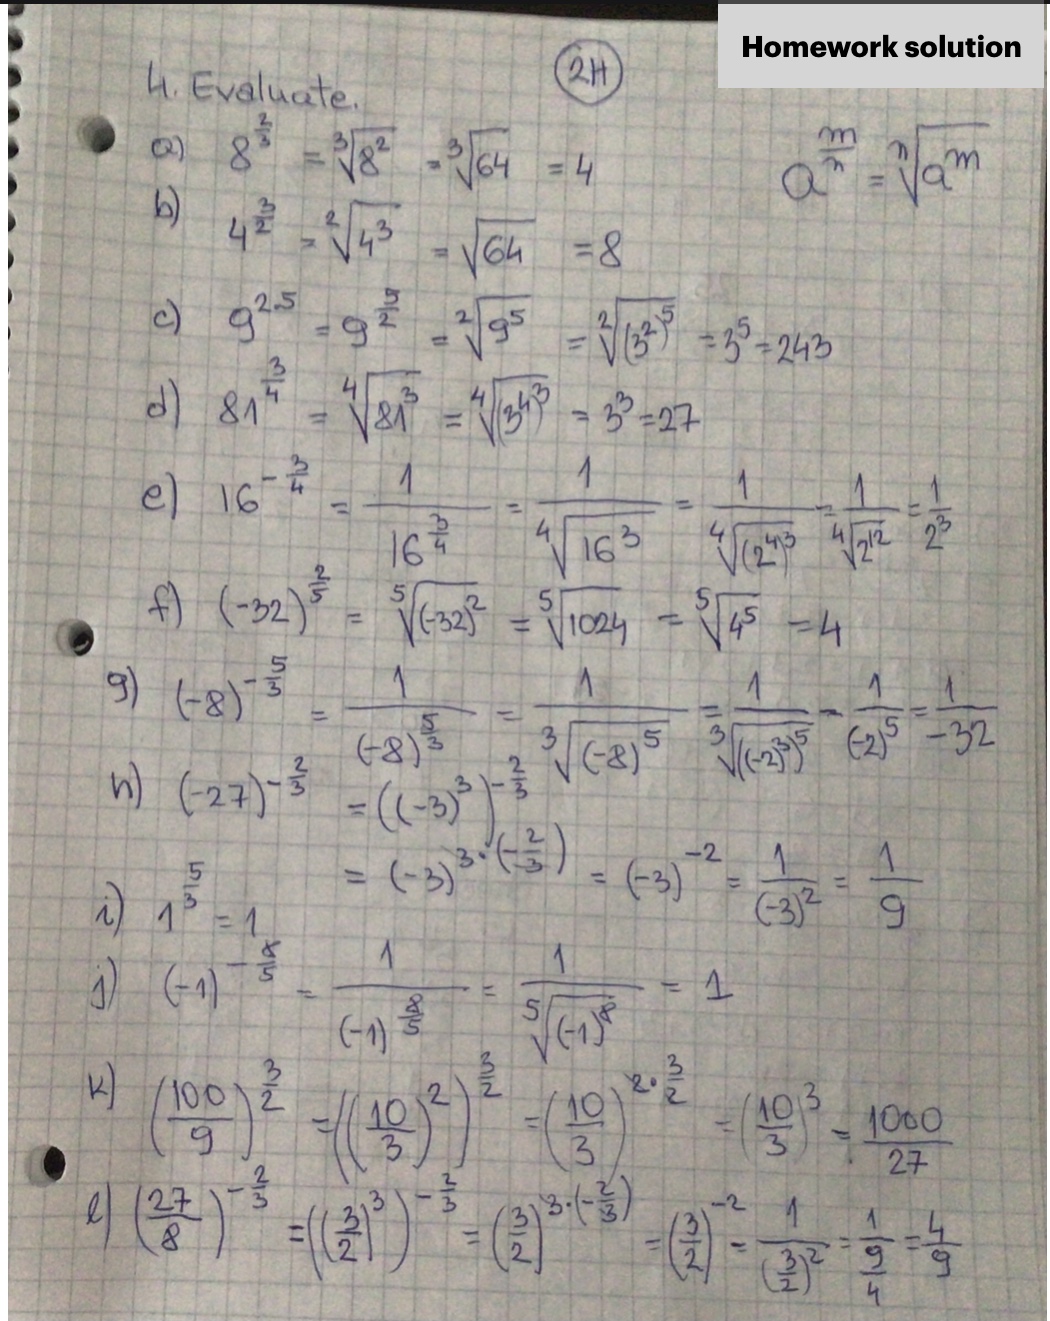 Homework solution
2H
4. Evaluate.
a^(m/n) = ⁿ√(a^m)
a) 8^(2/3) = ³√(8²) = ³√64 = 4
b) 4^(3/2) = ²√(4³) = √64 = 8
c) 9^(2.5) = 9^(5/2) = ²√(9⁵) = ²√((3²)⁵) = 3⁵ = 243
d) 81^(3/4) = ⁴√(81³) = ⁴√((3⁴)³) = 3³ = 27
e) 16^(-3/4) = 1/16^(3/4) = 1/⁴√(16³) = 1/⁴√((2⁴)³) = 1/⁴√(2¹²) = 1/2³
f) (-32)^(2/5) = ⁵√((-32)²) = ⁵√1024 = ⁵√(4⁵) = 4
g) (-8)^(-5/3) = 1/(-8)^(5/3) = 1/³√((-8)⁵) = 1/³√(((-2)³)⁵) = 1/(-2)⁵ = 1/-32
h) (-27)^(-2/3) = ((-3)³)^(-2/3)
= (-3)^(3·(-2/3)) = (-3)^(-2) = 1/(-3)² = 1/9
i) 1^(5/3) = 1
j) (-1)^(-8/5) = 1/(-1)^(8/5) = 1/⁵√((-1)⁸) = 1
k) (100/9)^(3/2) = ((10/3)²)^(3/2) = (10/3)^(2·3/2) = (10/3)³ = 1000/27
l) (27/8)^(-2/3) = ((3/2)³)^(-2/3) = (3/2)^(3·(-2/3)) = (3/2)^(-2) = 1/(3/2)² = 1/(9/4) = 4/9